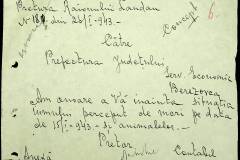 Pretura Raionului Landau
No 181 din 26/I-943.
Concept
6.
Către
Prefectura Județului
Serv. Economic
Berezovca
Am onoare a Vă înainta situația
uiumului perceput de mori pe data
de 15/I-943. și animalelor.
Pretor
Contabil